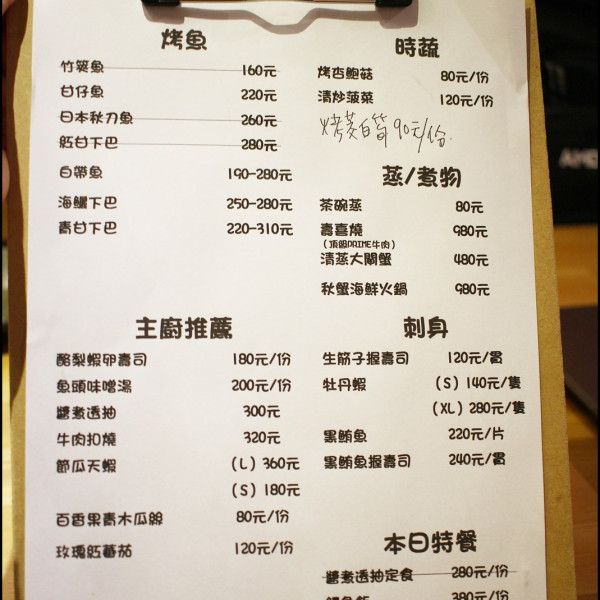 烤魚
竹筴魚 160元
甘仔魚 220元
日本秋刀魚 260元
紅甘下巴 280元
白帶魚 190-280元
海鱺下巴 250-280元
青甘下巴 220-310元
主廚推薦
酪梨蝦卵壽司 180元/份
魚頭味噌湯 200元/份
醬煮透抽 300元
牛肉扣燒 320元
節瓜天蝦 (L) 360元
(S) 180元
百香果青木瓜絲 80元/份
玫瑰紅蕃茄 120元/份
時蔬
烤杏鮑菇 80元/份
清炒菠菜 120元/份
烤茭白筍 90元/份
蒸/煮物
茶碗蒸 80元
壽喜燒 980元
(頂級PRIME牛肉)
清蒸大閘蟹 480元
秋蟹海鮮火鍋 980元
刺身
生筋子握壽司 120元/貫
牡丹蝦 (S) 140元/隻
(XL) 280元/隻
黑鮪魚 220元/片
黑鮪魚握壽司 240元/貫
本日特餐
醬煮透抽定食 280元/份
380元/份
AMD